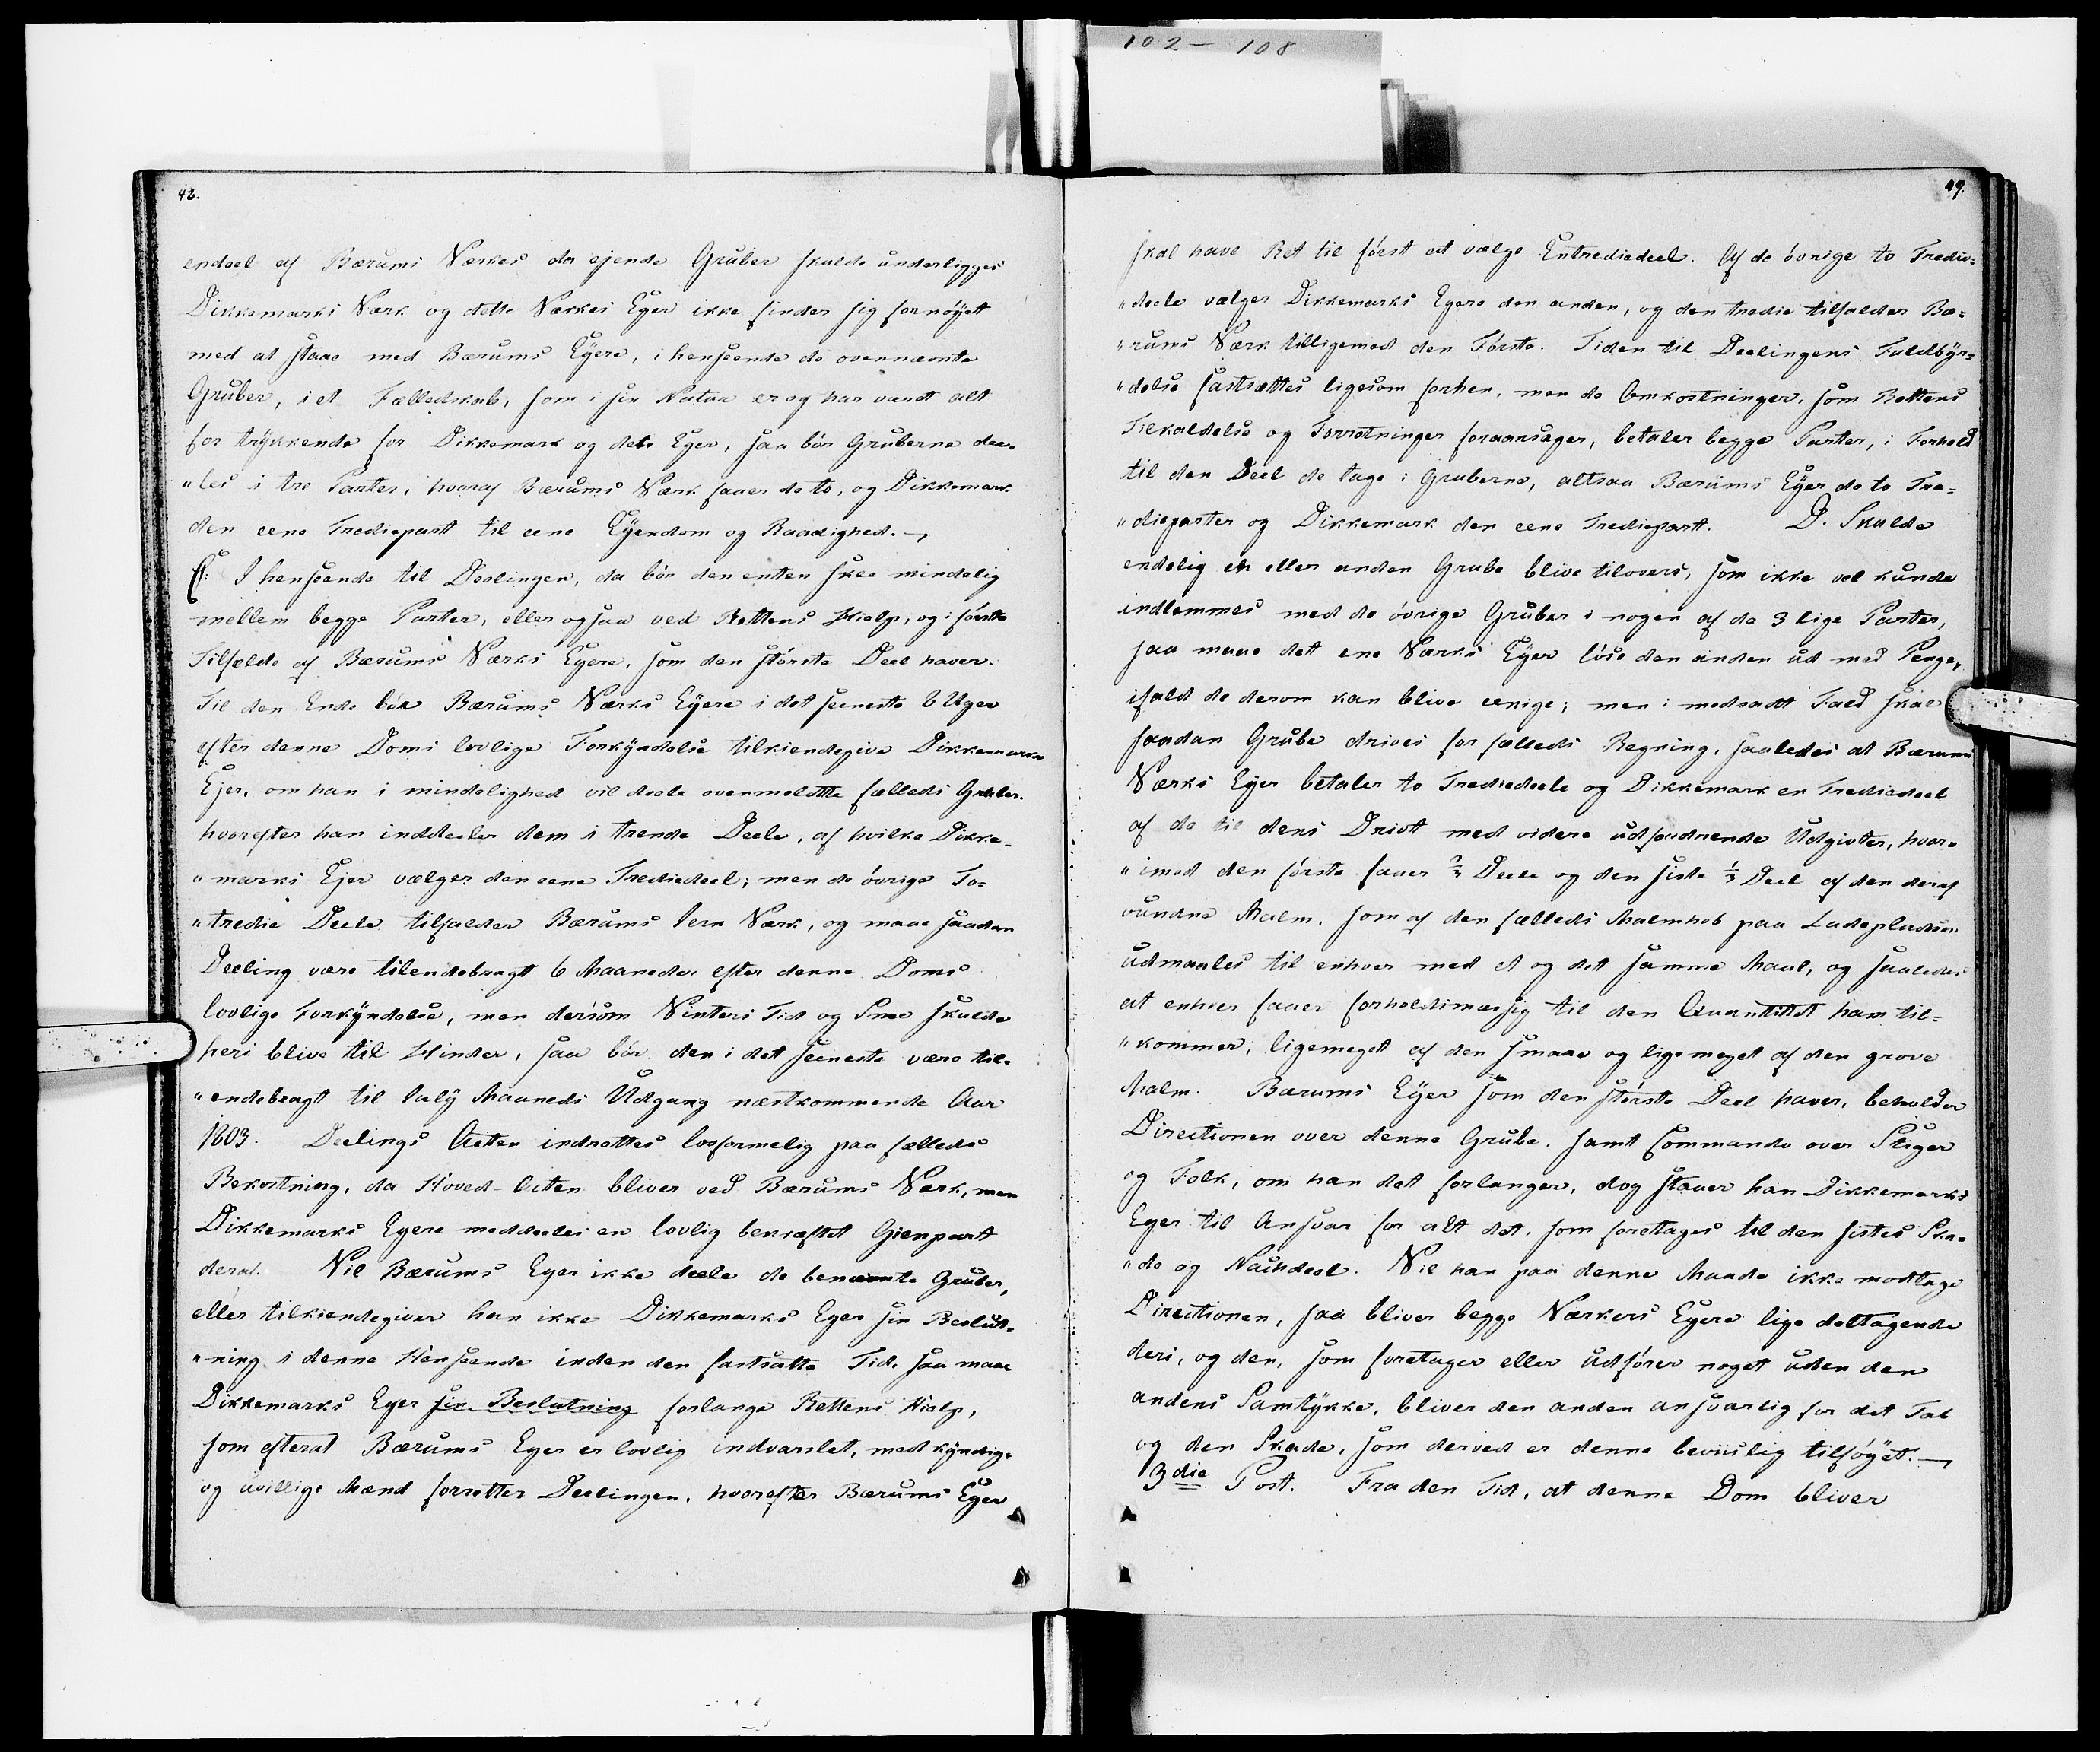 102 - 108
48.
endeel af Bærums Værkes da ejende Gruber skulde underligges
Dikkemarks Værk og dette Værkes Eyer ikke finder sig fornøyett
med at staae med Bærums Eyere, i henseende de ovennæmte
Gruber, i et Fælledskab, som i sin Natur er og har værdt alt
for trykkende for Dikkemark og dets Eyer, saa bør Gruberne dee-
"les i tre Parter, hvoraf Bærums Værk faaer de to, og Dikkemark
den eene Trediepart til eene Eyendom og Raadighed. —
C: I henseende til Deelingen, da bør den enten skee mindelig
mellem begge Parter, eller ogsaa ved Rettens Hielp, og i første
Tilfælde af Bærums Værks Eyere, som den største Deel haver.
Til den Ende bør Bærums Værks Eyere i det seeneste 6 Uger
efter denne Doms lovlige Forkyndelse tilkiendegive Dikkemarks
Ejer, om han i mindelighed vil deele ovenmeldte fælleds Gruber.
hvorefter han inddeeler dem i trende Deele, af hvilke Dikke-
"marks Ejer vælger den eene Trediedeel; men de øvrige To-
"tredie Deele tilfalder Bærums Iern Værk, og maae saadan
Deeling være tilendebragt 6 Maaneder efter denne Doms
lovlige Forkyndelse, men dersom Vinters Tid og Snee skulde
heri blive til Hinder, saa bør den i det seeneste være til-
"endebragt til July Maaneds Udgang næstkommende Aar
1803. Deelings Acten indrettes lovformelig paa fælleds
Bekostning, da Hoved-Acten bliver ved Bærums Værk, men
Dikkemarks Eyere meddeeles en lovlig bekræftet Gienpart
deraf. Vil Bærums Eyer ikke deele de benæmte Gruber,
eller tilkiendegiver han ikke Dikkemarks Eyer sin Beslut-
"ning i denne Henseende inden den fastsatte Tid, saa maae
Dikkemarks Eyer sin Beslutning forlange Rettens Hielp,
som efterat Bærums Eyer er lovlig indvarslet, med kyndige
og uvillige Mænd forretter Deelingen, hvorefter Bærums Eyer
49.
skal have Ret til først at vælge Entrediedeel. Af de øvrige to Tredie-
"deele vælger Dikkemarks Eyere den anden, og den tredie tilfalder Bæ-
"rums Værk tilligemed den Første. Tiden til Deelingens Fuldbyr-
"delse fastsættes ligesom forhen, men de Omkostninger, som Rettens
Tilkaldelse og Forretninger foraarsager, betaler begge Parter, i Forhold
til den Deel de tage i Gruberne, altsaa Bærums Eyer de to Tre-
"dieparter og Dikkemark den eene Trediepart. D. Skulde
endelig en eller anden Grube blive tilovers, som ikke vel kunde
indlemmes med de øvrige Gruber i nogen af de 3 lige Parter,
saa maae dett ene Værks Eyer løse den anden ud med Penge,
ifald de derom kan blive eenige; men i modsadt Fald skal
saadan Grube drives for fælleds Regning, saaledes at Bærums
Værks Eyer betaler to Trediedeele og Dikkemark en Trediedeel
af de til dens Drivt med videre udfordrende Udgivter, hvor-
"imod den første faaer 2/3 Deele og den sidste 1/3 Deel af den deraf
vundne Malm, som af den fælleds Malmhob paa Ladepladsen
udmaales til enhver med et og det samme Maal, og saaledes
at enhver faaer forholdsmæssig til den Quantitet ham til-
"kommer, ligemeget af den smaae og ligemeget af den grove
Malm. Bærums Eyer som den største Deel haver, beholder
Directionen over denne Grube, samt Commando over Stiger
og Folk, om han det forlanger, dog staaer han Dikkemarks
Eyer til Ansvar for alt det, som foretages til den sistes Ska-
"de og Nachdeel. Vil han paa denne Maade ikke modtage
Directionen, saa bliver begge Værkers Eyere lige deltagende
deri, og den, som foretager eller udfører noget uden den
andens Samtykke, bliver den anden ansvarlig for det Tab
og den Skade, som derved er denne beviislig tilføyet. —
3die Post. Fra den Tid, at denne Dom bliver